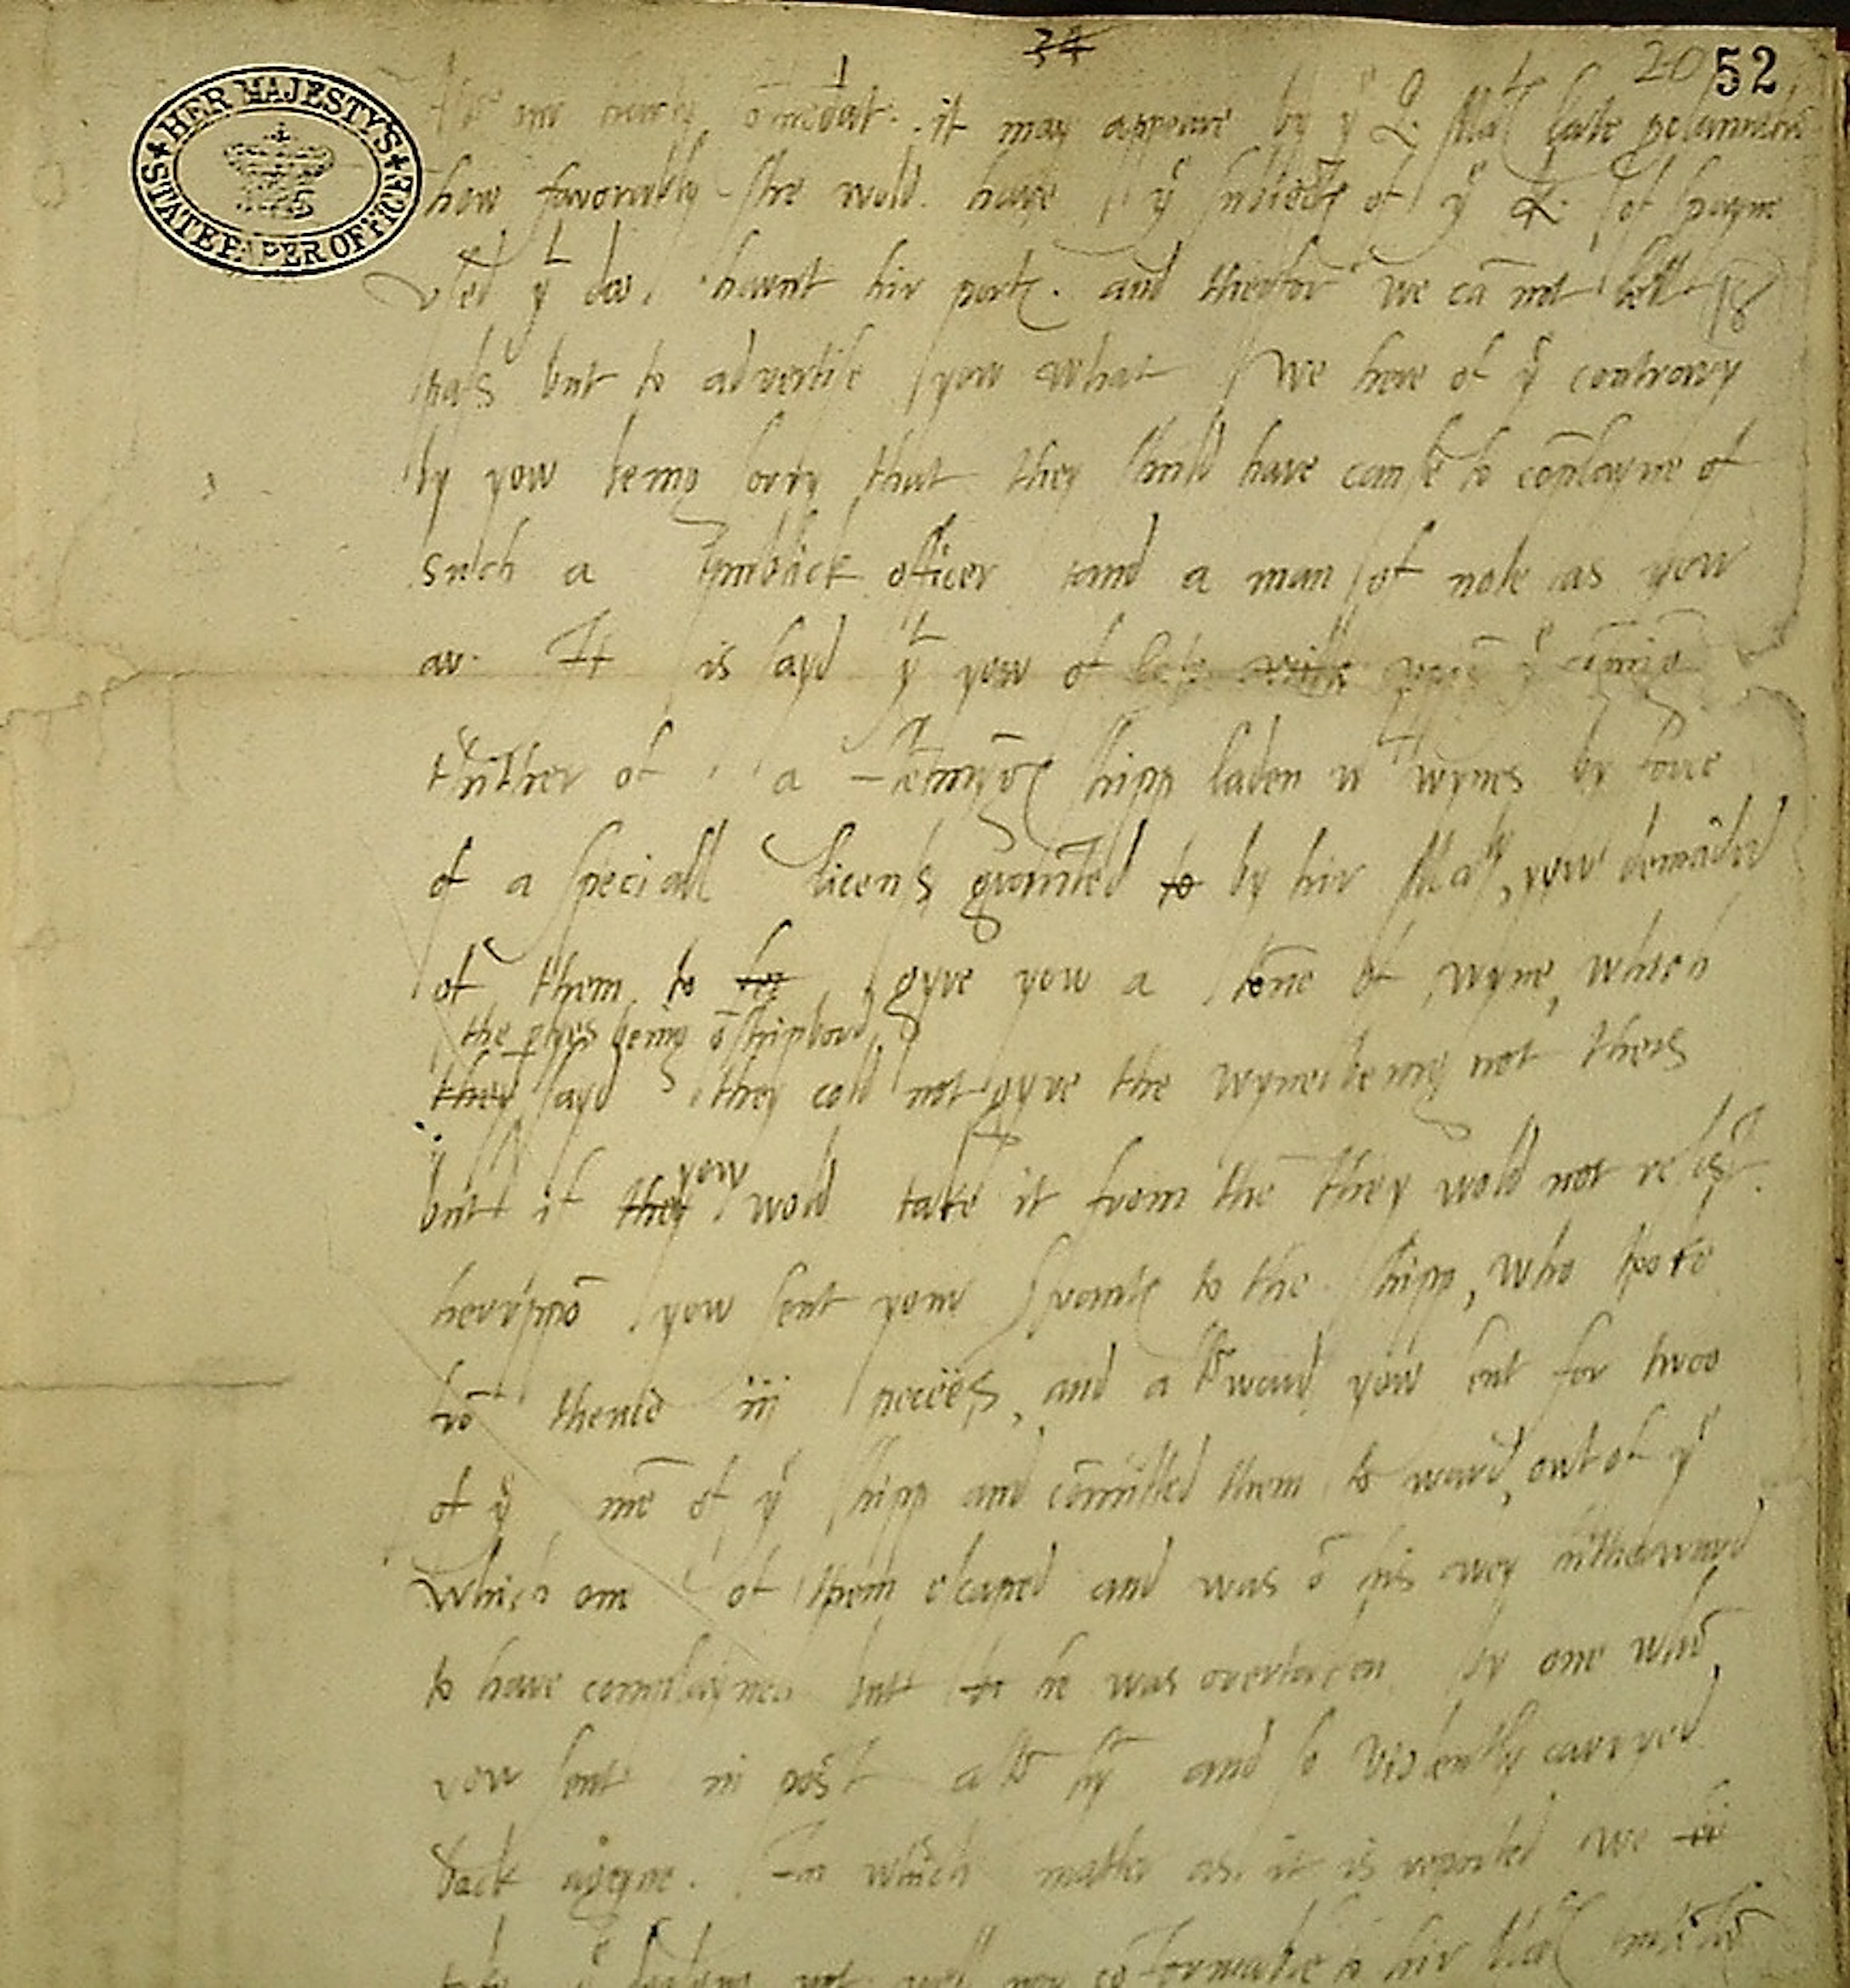 34
20 52
HER MAJESTY'S STATE PAPER OFFICE
it may appeare by yᵉ Q. Maᵗ late
how favorably she wold have yᵉ subiects of yᵉ K. of spayne
vsed yᵗ doo hawnt hir ports. and therfor we cā not lett
pass but to advertise yow what we here of yᵉ controversy
by yow being sorry that they shuld have cause to cōplayne of
such a publick officer and a man of note as yow
ar. It is sayd yᵗ yow of late vpō yᵉ
thither of a shipp laden wᵗ wynes by force
of a speciall licens graunted to by hir Maᵗʸ, yow demāded
of them to gyve yow a tōne of wyne, which
the being ō shipbord
they sayd they cold not gyve the wyne being not theirs
but if they yow wold take it from thē they wold not resist.
herevppō yow sent your servants to the shipp, who tooke
frō thence iij peeces, and afterward yow sent for twoo
of yᵉ mē of yᵉ shipp and cōmitted them to ward, out of yᵉ
which one of them escaped and was ō his wey hitherward
to have complayned but he was overtaken by one whō
yow sent in post after hȳ and so violently carryed
back agayne. In which matter as it is reported we
take yᵉ not well nor to hir Maᵗˢ